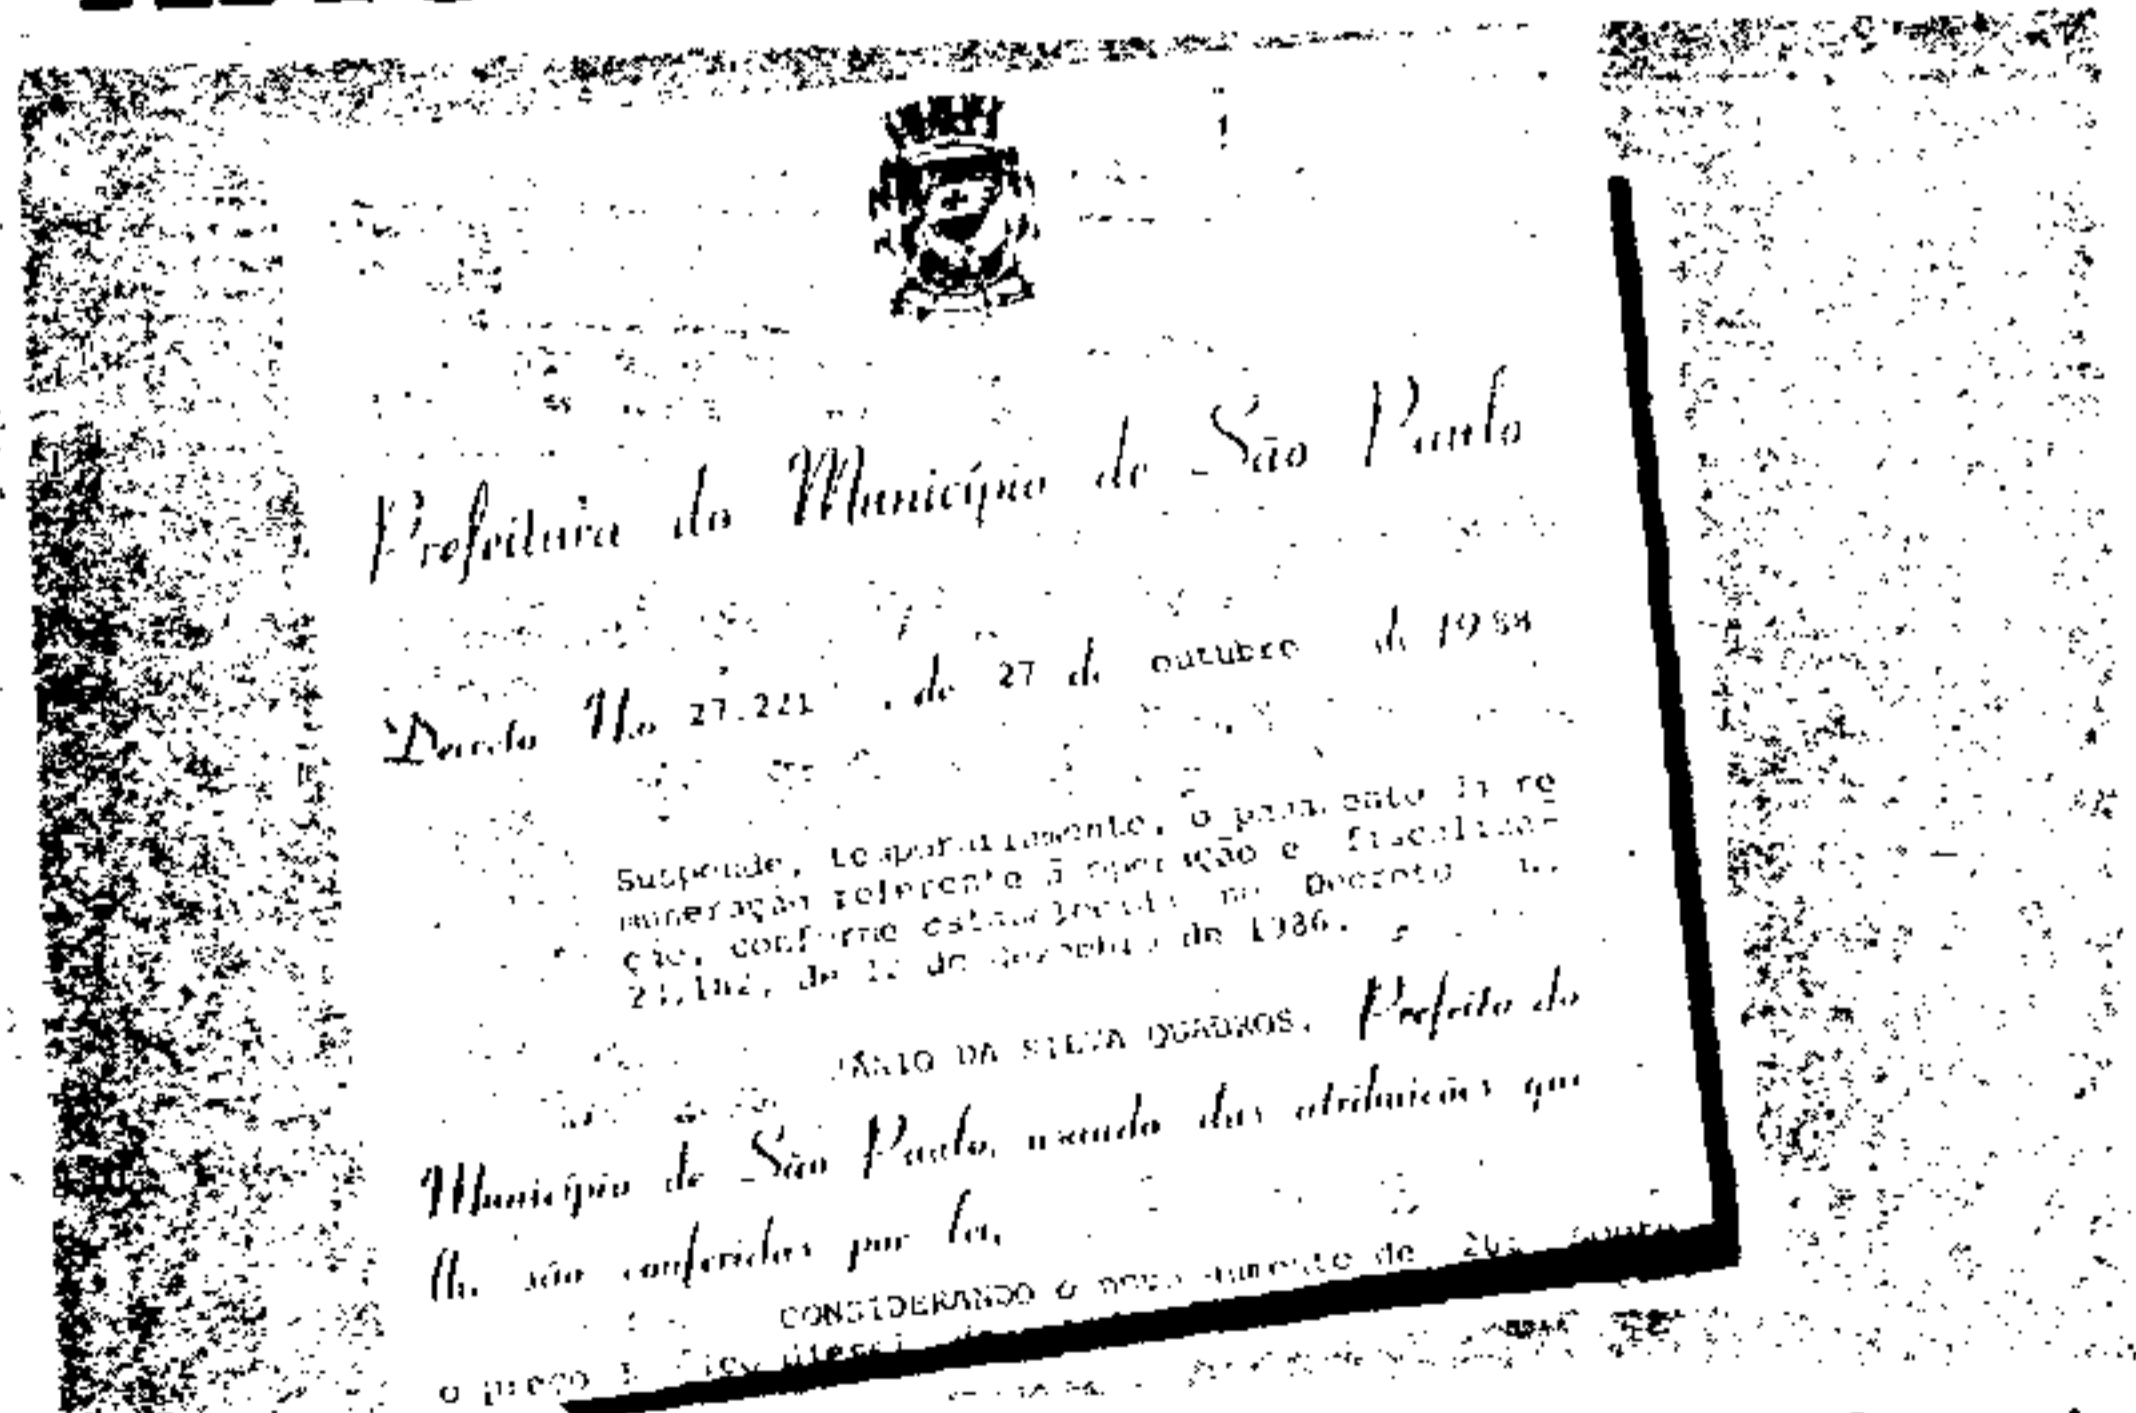 Prefeitura do Município de São Paulo
Decreto N.o 27.221 , de 27 de outubro de 1988
Suspende, temporariamente, o pagamento da re
muneração referente à operação e fiscaliza-
ção, conforme estabelecido no Decreto
de 12 de dezembro de 1986.
JÂNIO DA SILVA QUADROS, Prefeito do
Município de São Paulo, usando das atribuições que
lhe são conferidas por lei,
CONSIDERANDO o novo aumento de
o preço